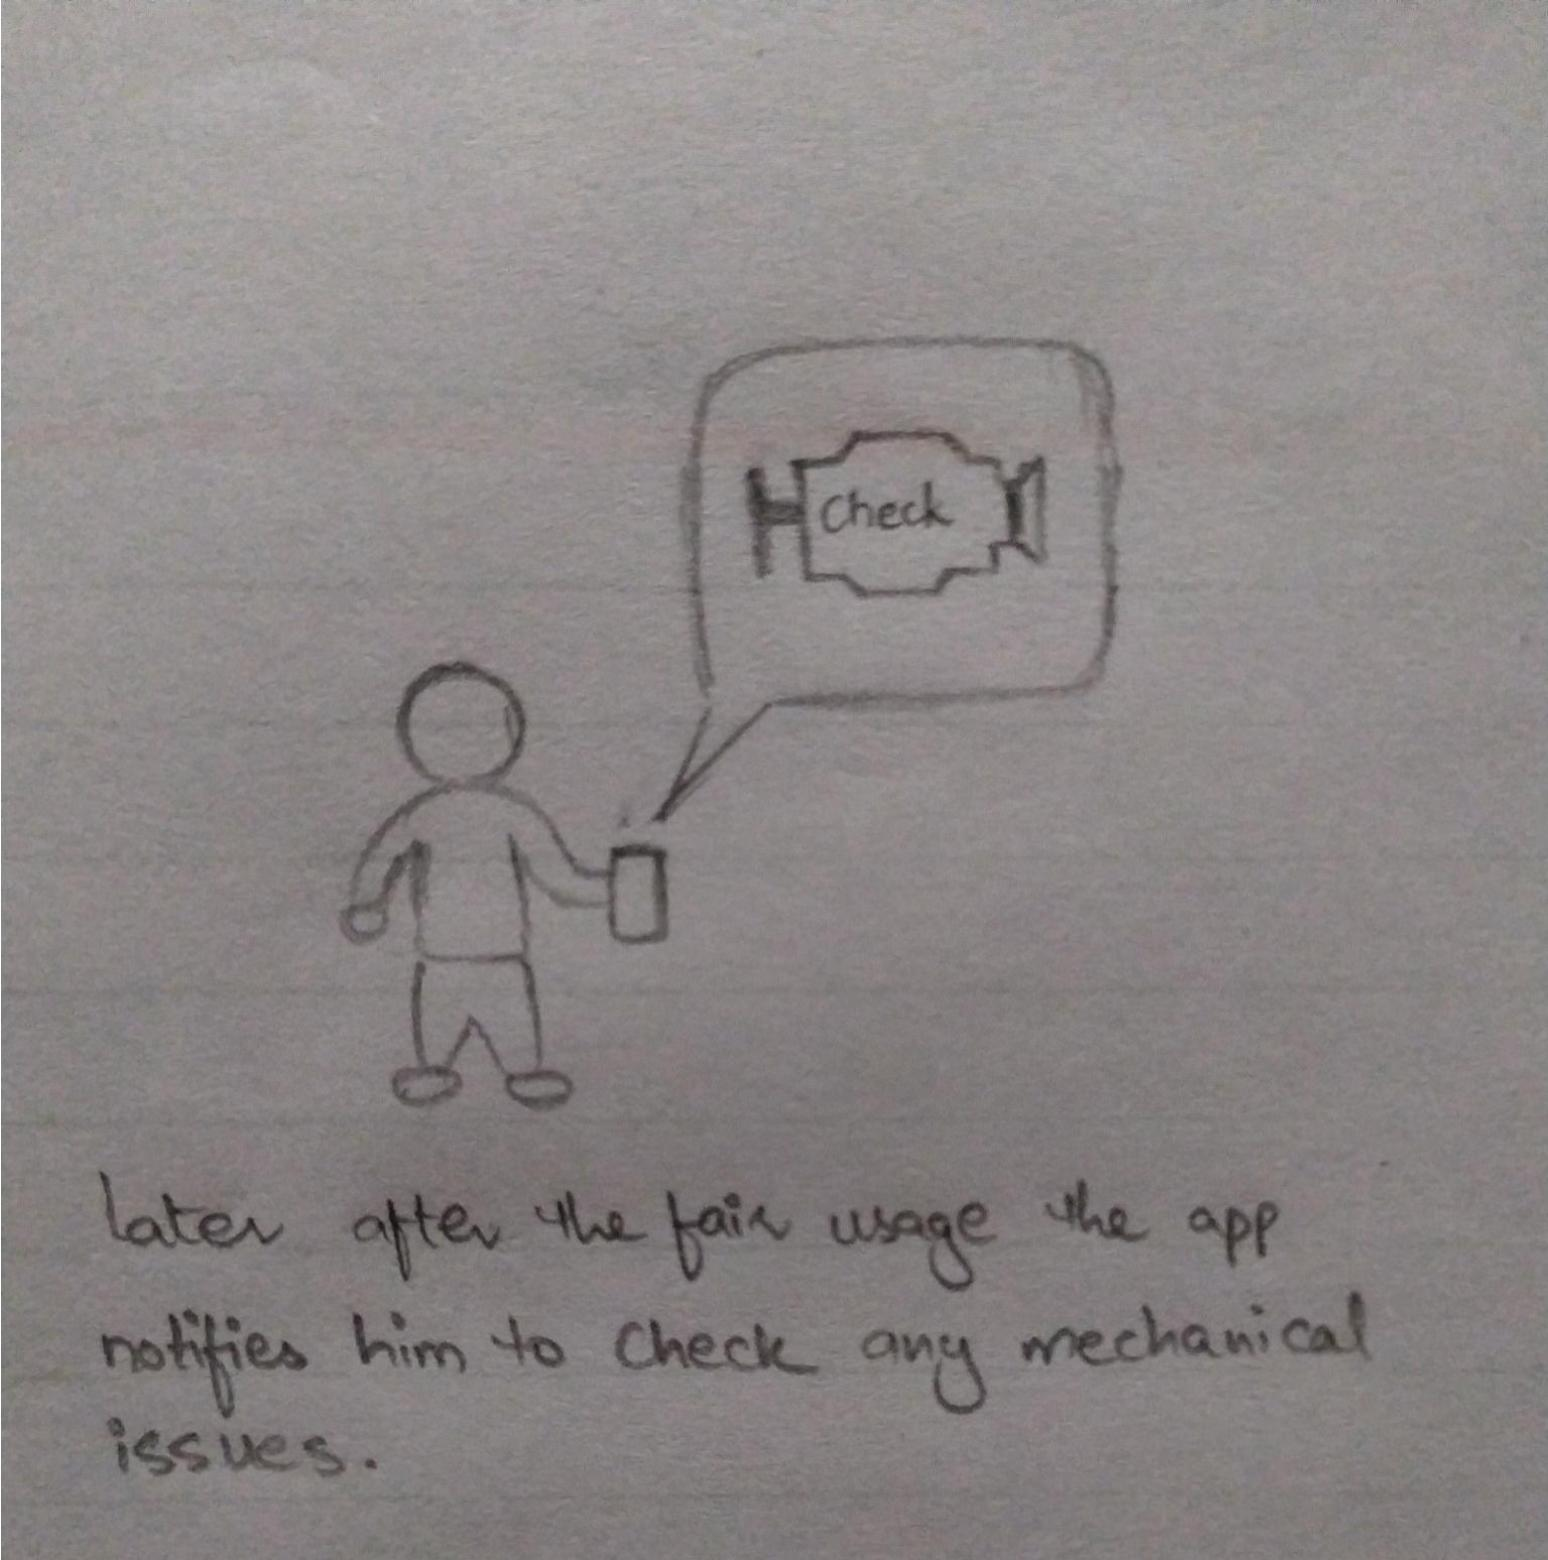 Check
Later after the fair usage the app
notifies him to check any mechanical
issues.